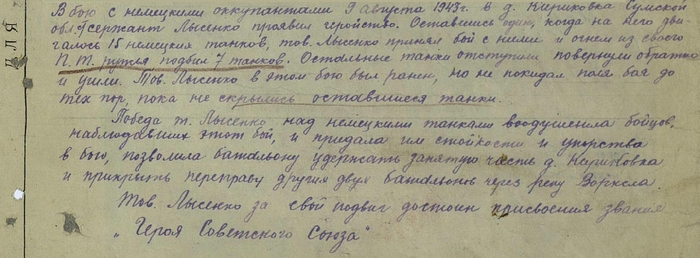 В бою с немецкими оккупантами 9 августа 1943г. в д. Кириковка Сумской
обл. сержант Лысенко проявил геройство. Оставшись один, когда на него дви
галось 15 немецких танков, тов. Лысенко принял бой с ними и огнем из своего
П.Т. ружья подбил 7 танков. Остальные танки отступили повернули обратно
и ушли. Тов. Лысенко в этом бою был ранен, но не покидал поля боя до
тех пор, пока не скрылись оставшиеся танки.
Победа т. Лысенко над немецкими танками воодушевила бойцов,
наблюдавших этот бой, и придала им стойкости и упорства
в бою, позволила батальону удержать занятую часть д. Кириковка
и прикрыть переправу других двух батальонов через реку Ворскла.
Тов. Лысенко за свой подвиг достоин присвоения звания
„Героя Советского Союза"
ДЛЯ